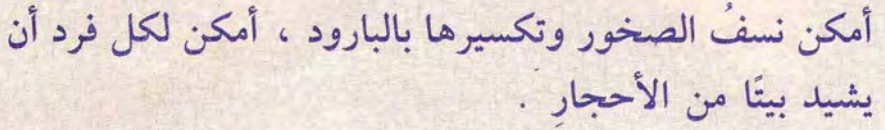 أمكن نسفُ الصخور وتكسيرها بالبارود ، أمكن لكل فرد أن
يشيد بيتًا من الأحجارِ .